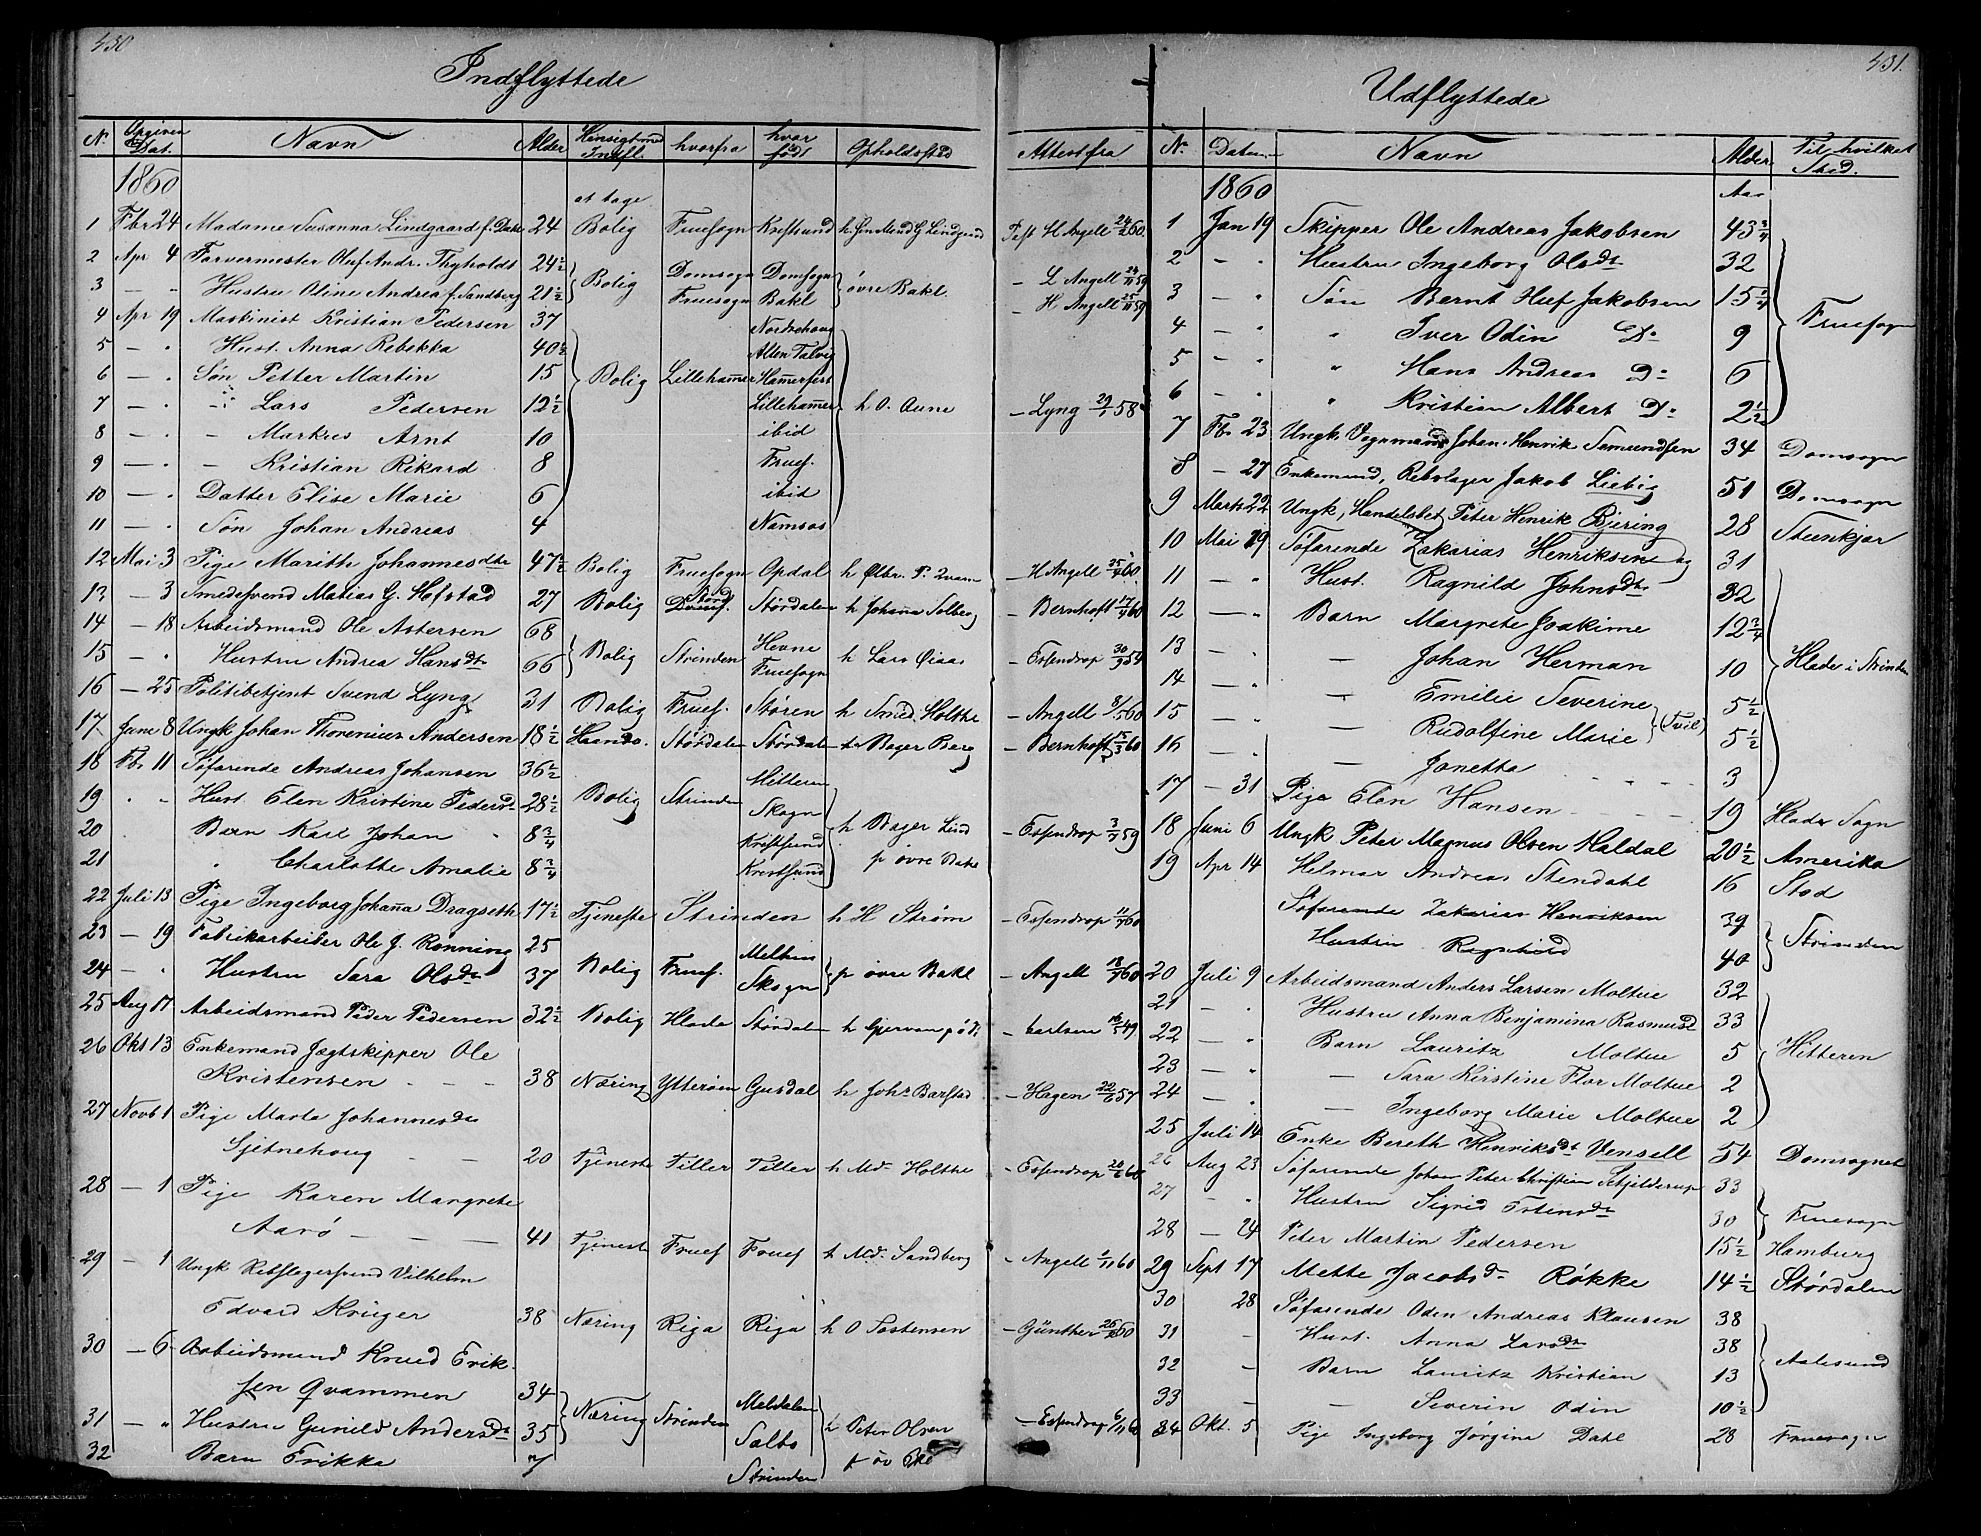 430
Indflyttede
N. Opgiven Dat. Navn Alder Hensigt med Indfl. hvorfra hvor født Opholdssted Attest fra
1860 at tage
1 Fbr 24 Madame Susanna Lindgaard f. Dahl 24 Bolig Fruesogn Kristsund h Lindgaard Past H Angell 24/2 60
2 Apr 4 Farvermester Oluf Andr. Thyholdt 24½ Bolig Domsogn Domsogn øvre Bakl. – L Angell 24/11 59
3 – " Hustru Oline Andrea f. Sandberg 21½ Fruesogn Bakl – H Angell 25/11 59
4 Apr 19 Maskinist Kristian Pedersen 37 Nordrehoug
5 – " Hust. Anna Rebekka 40½ Alten Talvig
6 – " Søn Petter Martin 15 Bolig Lillehamer Hamerfest
7 – " – Lars Pedersen 12½ Lillehamer h O. Aune – Lyng 29/1 58
8 – " – Markus Arnt 10 ibid
9 – " – Kristian Rikard 8 Fruef.
10 – " Datter Elise Marie 6 ibid
11 – " Søn Johan Andreas 4 Namsos
12 Mai 3 Pige Marith Johannesdtr 47½ Bolig Fruesogn Opdal h Ølbr. P. Qvam – H Angell 25/4 60
13 – 3 Smedesvend Matias G. Hofstad 27 Bolig Størd Størdalen h Johana Solberg – Bernhoft 17/4 60
14 – 18 Arbeidsmand Ole Astersen 68 Bolig Strinden Hevne h Lars Øiaas – Essendrop 30/9 54
15 – " Hustru Andrea Hansdt 66 Fruesogn
16 – 25 Politibetjent Svend Lyng 31 Bolig Fruef. Støren h Smed Holthe – Angell 8/5 60
17 June 8 Ungk Johan Thorenius Andersen 18½ Haandv. Størdalen Størdal h Bager Berg – Bernhoft 15/3 60
18 Fbr 11 Søfarende Andreas Johansen 36½ Hitteren
19 " " Hust. Elen Kristine Pedersd 28½ Bolig Strinden Skogn
20 Barn Karl Johan 8¾ Kristsund h Bager Lind – Essendrop 3/7 59
21 " Charlotte Amalie 8¾ Kristsund p øvre Bakl
22 Juli 13 Pige Ingeborg Johana Dragseth 17½ Tjeneste Strinden h H Strøm – Essendrop 11/7 60
23 – 19 Fabrikarbeider Ole J. Rønning 25 Bolig Fruef. Melhus p øvre Bakl – Angell 18/7 60
24 – " Hustru Sara Olsdt 37 Skogn
25 Aug 17 Arbeidsmand Peder Pedersen 32½ Bolig Hlade Størdal h Gjervan p ø B. – Carlsen 16/5 49
26 Okt 13 Enkemand Jægtskipper Ole
Kristensen – – – 38 Næring Ytterøen Gusdal h Joh. Barstad – Hagen 22/6 57
27 Novb 1 Pige Marta Johannesdt
Sjetnehoug – – 20 Tjeneste Tiller Tiller h Md. Holthe – Essendrop 24/2 60
28 – 1 Pige Karen Margrete
Aarø – – – 41 Tjeneste Fruef Fruef h Md. Sandberg – Angell 1/11 60
29 – 1 Ungk Rebslagersvend Vilhelm
Edvard Krüger 38 Næring Riga Riga h O Tostensen – Günther 60
30 – 6 Arbeidsmand Knud Erik-
sen Qvammen 34 Næring Strinden Meldalen
31 – " Hustru Gunild Andersdt 35 Salbo h Peter Olsen – Essendrop 6/11 60
32 Barn Erikka 7 Strinden p øv Bkl
431.
Udflyttede
N. Datum Navn Alder Til hvilket Sted.
1860 Aar
1 Jan 19 Skipper Ole Andreas Jakobsen 43¾
2 – " Hustru Ingeborg Olsdt 32
3 – " Søn Bernt Huf Jakobsen 15¼ Fruesogn
4 – " " Iver Odin Do 9
5 – " " Hans Andreas Do 6
6 – " " Kristian Albert Do 2½
7 Fbr 23 Ungk. Vognmand Johan Henrik Semundsen 34 Domsogn
8 – 27 Enkemand, Rebslager Jakob Liebig 51 Domsogn
9 Marts 22 Ungk, Handelsbet Peter Henrik Bjering 28 Steenkjær
10 Mai 19 Søfarende Zakarias Henriksen og 31
11 – " Hust. Ragnild Johnsdt 32
12 – " Barn Margrete Joakime 12¾
13 – " – Johan Herman 10 Hlade i Strinden
14 – " – Emilie Severine 5½
15 – " – Rudolfine Marie (Tvil) 5½
16 – " – Janetta 3
17 – 31 Pige Elen Hansen 19 Hlade Sogn
18 Juni 6 Ungk Peter Magnus Olsen Haldal 20½ Amerika
19 Apr 14 Helmar Andreas Stendahl 16 Stod
Søfarende Zakarias Henriksen 39 Strinden
Hustru Ragnhild 40
20 Juli 9 Arbeidsmand Anders Larsen Moltue 32
21 – " Hustru Anna Benjamina Rasmusd 33
22 – " Barn Lauritz Moltue 5 Hitteren
23 – " – Sara Kirstine Flor Moltue 2
24 – " – Ingeborg Marie Moltue 2
25 Juli 14 Enke Bereth Henriksdt Vensell 54 Domsognet
26 Aug 23 Søfarende Johan Peter Christian Schjelderup 33 Fruesogn
27 – " Hustru Sigrid Estensdt 30
28 – 24 Peter Martin Pedersen 15½ Hamburg
29 Sept 17 Mette Jacobsd. Røkke 14½ Størdalen
30 28 Søfarende Oden Andreas Klausen 38
31 – Hust. Anna Larsdt 38 Aalesund
32 – Barn Lauritz Kristian 13
33 – – Severin Odin 10½
34 Okt. 5 Pige Ingeborg Jørgina Dahl 28 Fruesogn